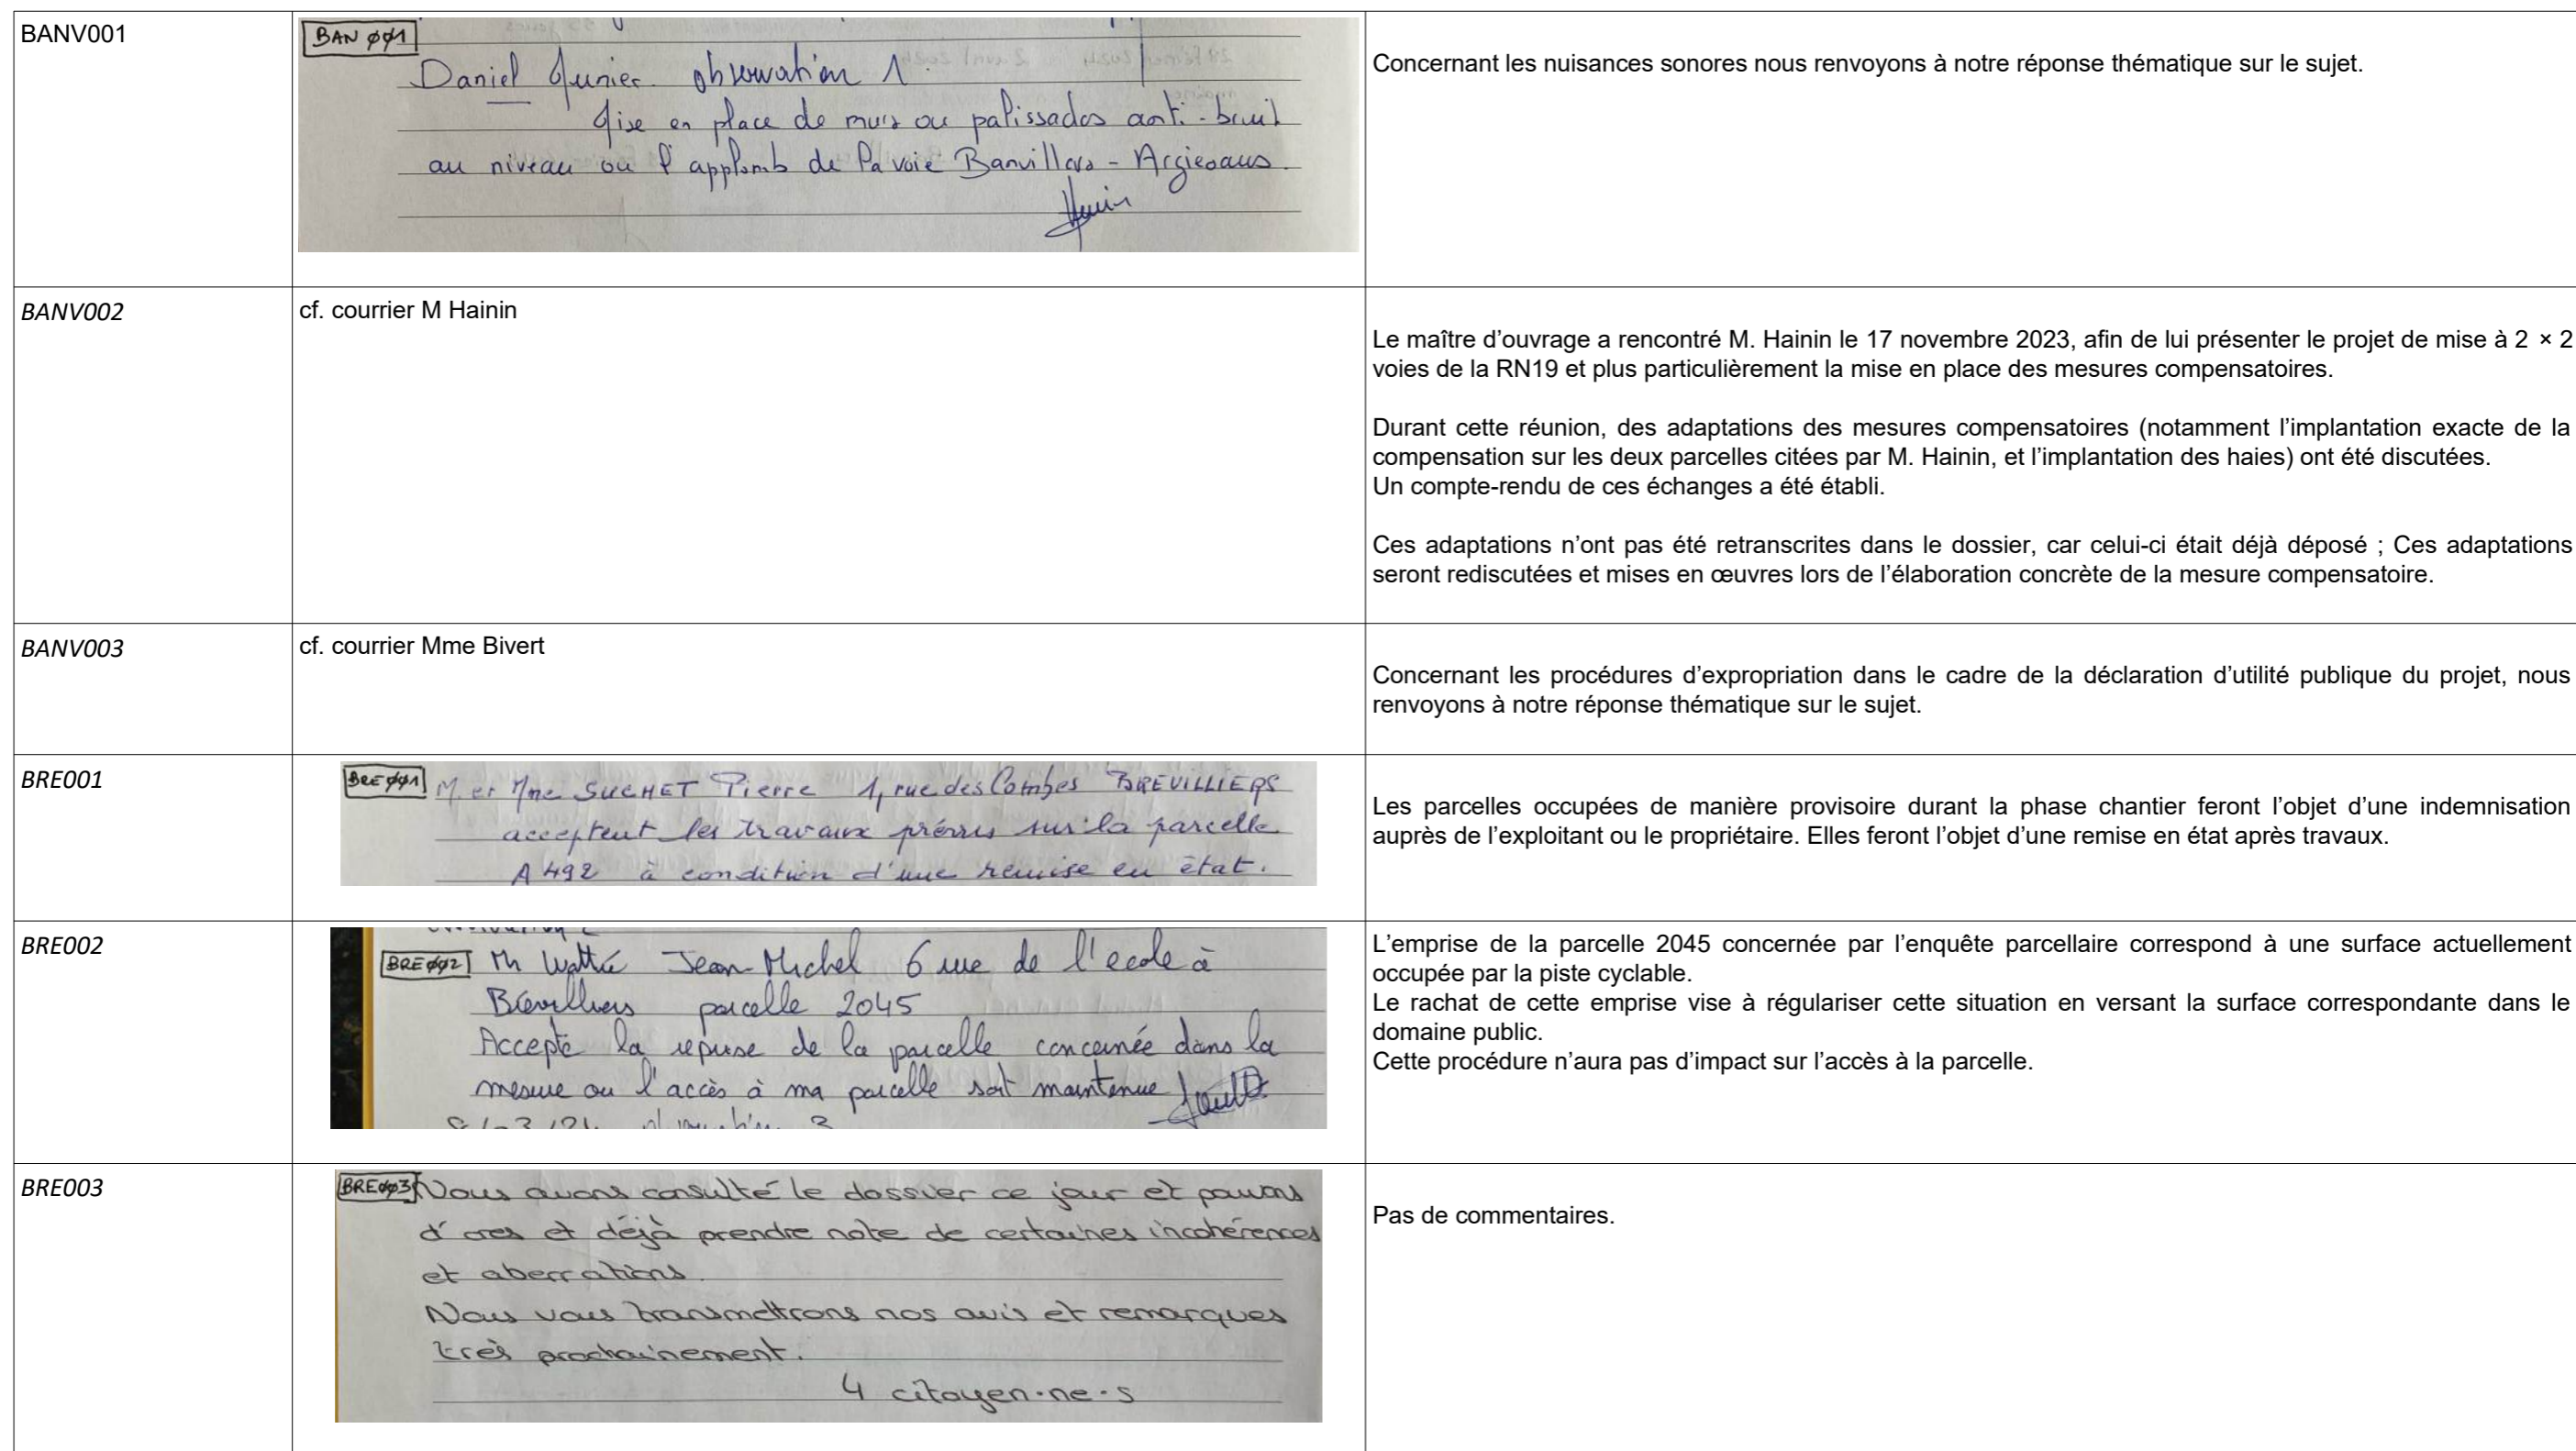 BANV001
BAN 001
Daniel Junier. observation 1.
Mise en place de murs ou palissades anti-bruit
au niveau ou l'applomb de la voie Banvillars - Argiesans.
Concernant les nuisances sonores nous renvoyons à notre réponse thématique sur le sujet.
BANV002
cf. courrier M Hainin
Le maître d’ouvrage a rencontré M. Hainin le 17 novembre 2023, afin de lui présenter le projet de mise à 2 × 2
voies de la RN19 et plus particulièrement la mise en place des mesures compensatoires.
Durant cette réunion, des adaptations des mesures compensatoires (notamment l’implantation exacte de la
compensation sur les deux parcelles citées par M. Hainin, et l’implantation des haies) ont été discutées.
Un compte-rendu de ces échanges a été établi.
Ces adaptations n’ont pas été retranscrites dans le dossier, car celui-ci était déjà déposé ; Ces adaptations
seront rediscutées et mises en œuvres lors de l’élaboration concrète de la mesure compensatoire.
BANV003
cf. courrier Mme Bivert
Concernant les procédures d’expropriation dans le cadre de la déclaration d’utilité publique du projet, nous
renvoyons à notre réponse thématique sur le sujet.
BRE001
BRE001
M. et Mme SUCHET Pierre 1, rue des Combes BREVILLIERS
acceptent les travaux prévus sur la parcelle
A 492 à condition d'une remise en état.
Les parcelles occupées de manière provisoire durant la phase chantier feront l’objet d’une indemnisation
auprès de l’exploitant ou le propriétaire. Elles feront l’objet d’une remise en état après travaux.
BRE002
BRE002 Mr Jean-Michel 6 rue de l'ecole à
Brevilliers parcelle 2045
Accepte la reprise de la parcelle concernée dans la
mesure ou l'accès à ma parcelle soit maintenue
L’emprise de la parcelle 2045 concernée par l’enquête parcellaire correspond à une surface actuellement
occupée par la piste cyclable.
Le rachat de cette emprise vise à régulariser cette situation en versant la surface correspondante dans le
domaine public.
Cette procédure n’aura pas d’impact sur l’accès à la parcelle.
BRE003
BRE003 Nous avons consulté le dossier ce jour et pouvons
d'ores et déjà prendre note de certaines incohérences
et aberrations.
Nous vous transmettrons nos avis et remarques
très prochainement.
4 citoyen·ne·s
Pas de commentaires.